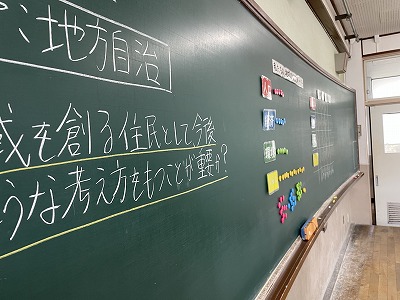 ：地方自治
域を創る住民として今後
うな考え方をもつことが重要か？